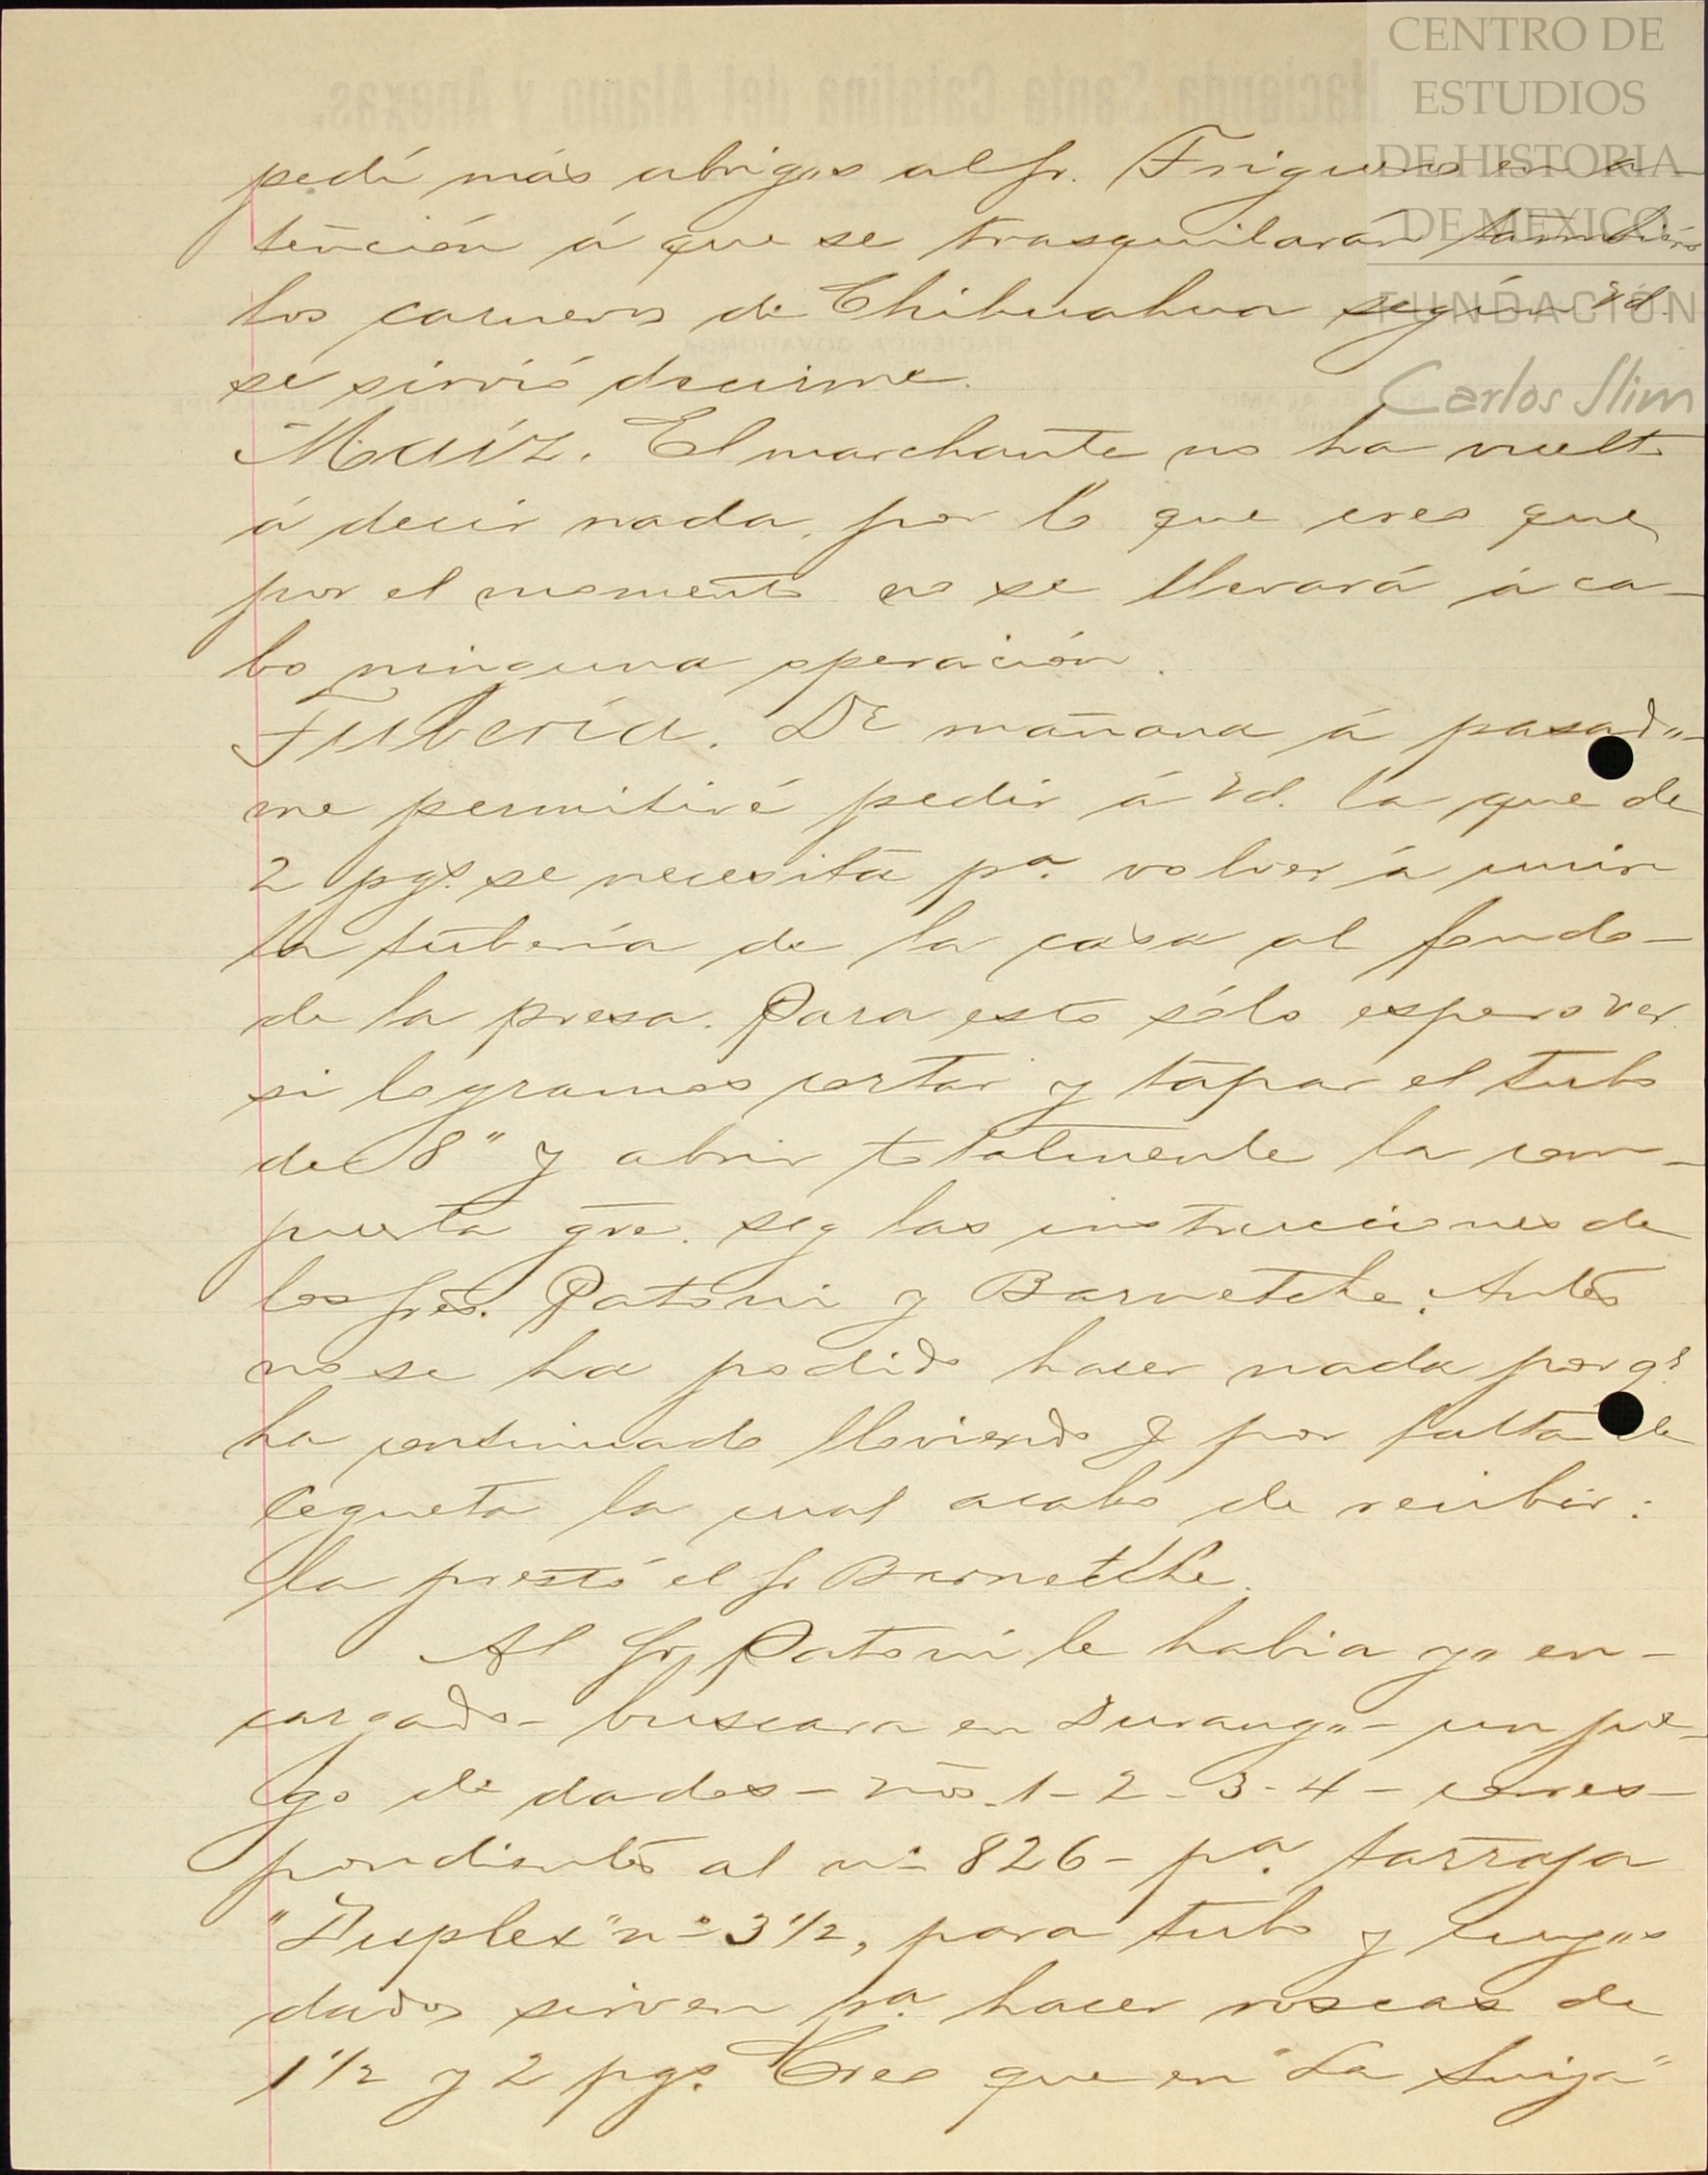 CENTRO DE
ESTUDIOS
DE HISTORIA
DE MEXICO
FUNDACIÓN
Carlos Slim
pedí más abrigos al Sr. Trigueros en a-
tención á que se trasquilarán también
los carneros de Chihuahua según Vd.
se sirvió decirme.
Maíz. El marchante no ha vuelto
á decir nada, por lo que creo que
por el momento no se llevará á ca-
bo ninguna operación.
Tubería. De mañana á pasado-
me permitiré pedir á Vd. la que de
2 pgs. se necesita pa. volver á unir
la tubería de la casa al fondo-
de la presa. Para esto sólo espero ver
si logramos cortar y tapar el tubo
de 8" y abrir totalmente la com-
puerta gre. seg las instrucciones de
los Sres. Patoni y Barnetche. Antes
no se ha podido hacer nada porqe.
ha continuado lloviendo y por falta de
segueta la cual acabo de recibir:
la prestó el Sr Barnetche.
Al Sr, Patoni le habia ya en-
cargado- buscara en Durango- un jue-
go de dados- nos. 1-2-3-4- corres-
pondientes al no 826- pa. tarraja
"Duplex" no 3 1/2, para tubo y cuyos
dados sirven pa. hacer roscas de
1 1/2 y 2 pgs. Creo que en "La Suiza"